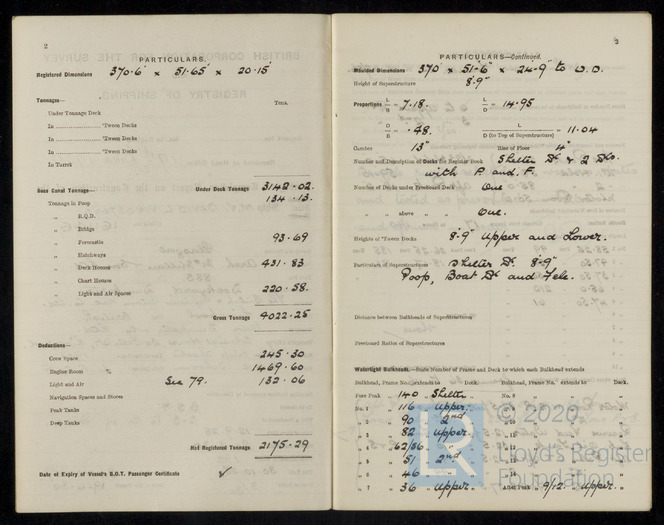 2
PARTICULARS.
Registered Dimensions 370·6' x 51·65' x 20·15'
Tonnages— Tons.
Under Tonnage Deck
In .................... 'Tween Decks
In .................... 'Tween Decks
In .................... 'Tween Decks
In Turret
Suez Canal Tonnage— Under Deck Tonnage 3142·02.
Tonnage in Poop 134·13.
„ R.Q.D.
„ Bridge
„ Forecastle 93·69
„ Hatchways
„ Deck Houses 431·83
„ Chart Houses
„ Light and Air Spaces 220·58.
Gross Tonnage 4022·25
Deductions—
Crew Space 245·30
Engine Room 1469·60
Light and Air Sec 79. 132·06
Navigation Spaces and Stores
Peak Tanks
Deep Tanks
Net Registered Tonnage 2175·29
Date of Expiry of Vessel's B.O.T. Passenger Certificate ✓
3
PARTICULARS—Continued.
Moulded Dimensions 370' x 51'·6" x 24·9" to U.D.
Height of Superstructure 8'·9"
Proportions L/B = 7·18. L/D = 14·95
D/B = ·48. L/D (to Top of Superstructure) = 11·04
Camber 13" Rise of Floor 4"
Number and Description of Decks for Register Book Shelter Dk & 2 Dks.
with P. and F.
Number of Decks under Freeboard Deck One
„ „ above „ „ One.
Heights of 'Tween Decks 8'·9" Upper and Lower.
Particulars of Superstructures Shelter Dk 8'·9"
Poop, Boat Dk and Fcle.
Distance between Bulkheads of Superstructures
Fractional Ratios of Superstructures
Watertight Bulkheads.—State Number of Frame and Deck to which each Bulkhead extends
Bulkhead, Frame No. extends to Deck. Bulkhead, Frame No. extends to Deck.
Fore Peak „ 140 Shelter „ No. 8
No. 1 „ 116 Upper „
2 „ 90 2nd „ 10
3 „ 82 Upper „
4 „ 62/56 „
5 „ 51 2nd „
6 „ 46 „
7 „ 36 Upper „ After Peak „ 9/12 Upper „
LR
© 2020
Lloyd's Register
Foundation